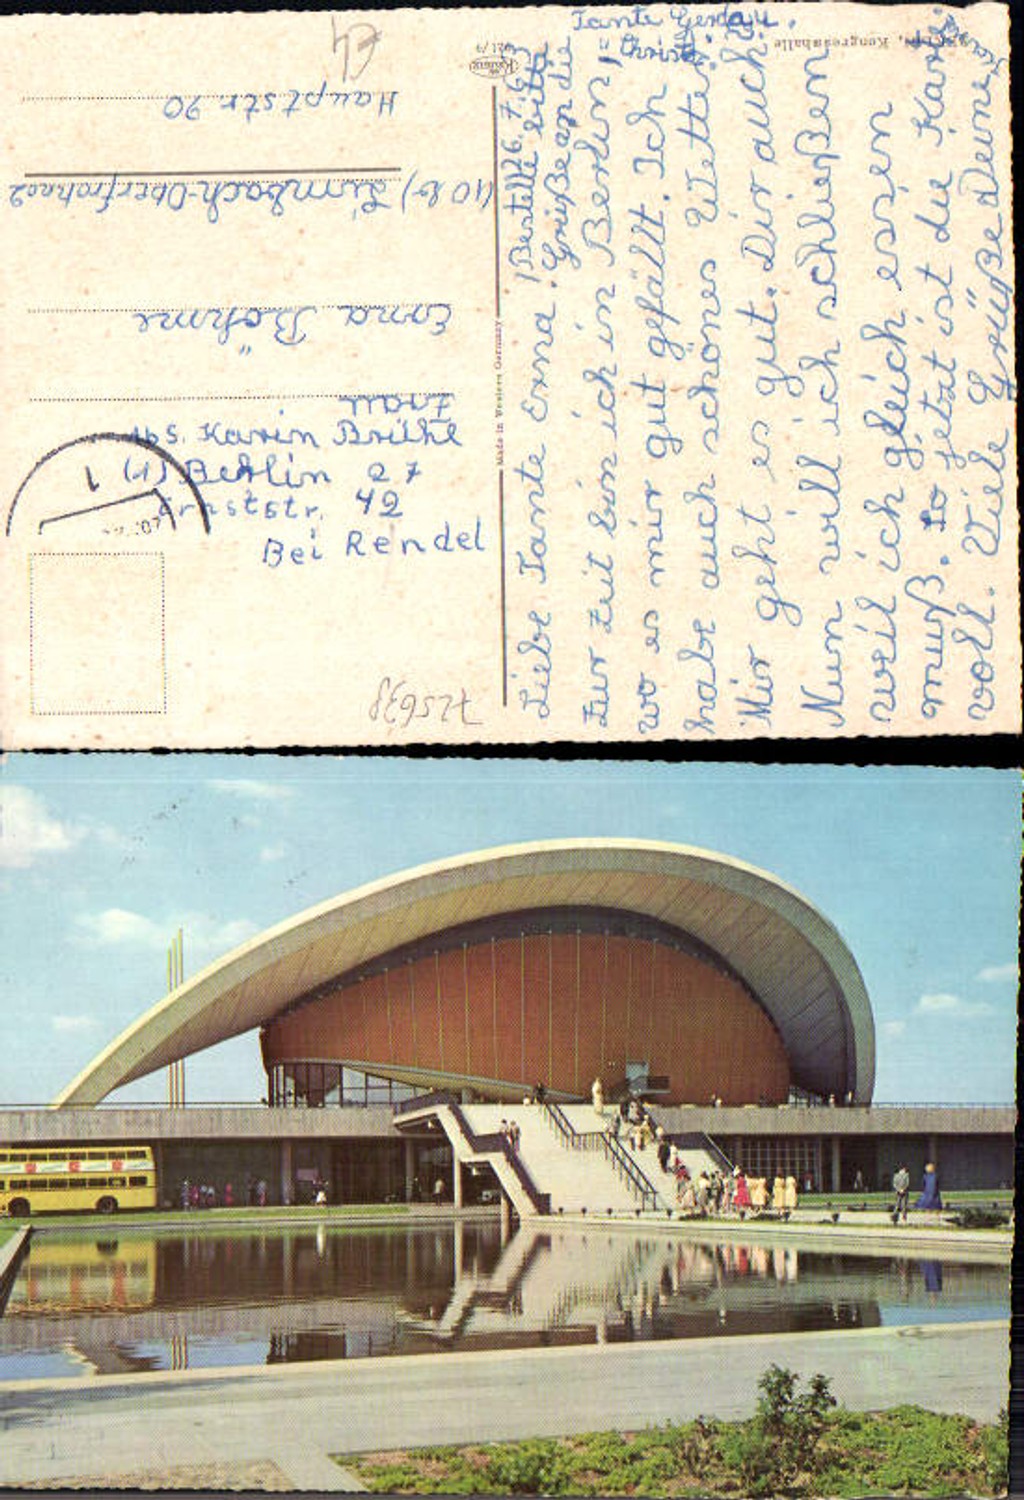 Liebe Tante Erna!
Zur Zeit bin ich in Berlin
wo es mir gut gefällt. Ich
habe auch schönes Wetter.
Mir geht es gut. Dir auch?
Nun will ich schließen
weil ich gleich essen
muß. So jetzt ist die Karte
voll. Viele Grüße Deine
(Bestelle bitte
Grüße an die
Tante Gerda u.
Christa
26. 7. 63
Made in Western Germany
Kongresshalle
Krüger
921/9
Frau
Erna Böhme
(10 b) Limbach-Oberfrohna 2
Hauptstr. 90
Abs. Karin Brühl
(1) Berlin 27
Ernststr. 42
Bei Rendel
1
725698